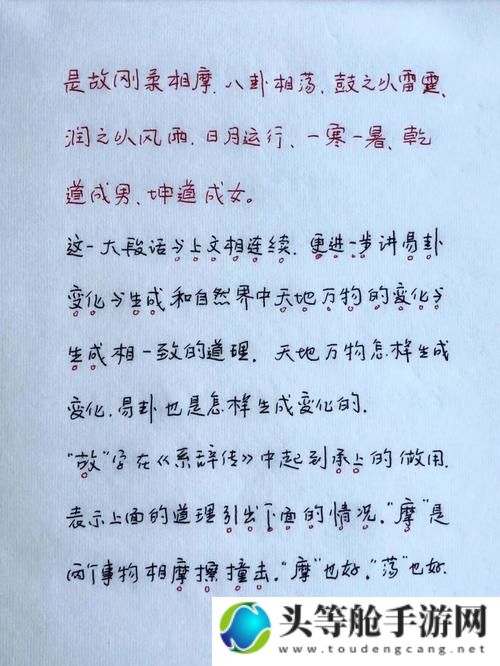 是故刚柔相摩、八卦相荡、鼓之以雷霆、
润之以风雨、日月运行、一寒一暑、乾
道成男、坤道成女。
这一大段话与上文相连续、更进一步讲易卦
变化与生成和自然界中天地万物的变化与
生成相一致的道理.天地万物怎样生成
变化.易卦也是怎样生成变化的.
“故”字在《系辞传》中起到承上的做用.
表示上面的道理引出下面的情况.“摩”是
两个事物相摩擦撞击.“摩”也好.“荡”也好.
头等舱手游网
www.toudengcang.net